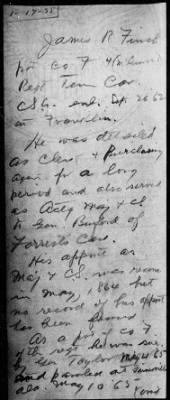 1-19-35
James R Finch
pvt Co F 4 (McLemore's)
Regt Tenn Cav.
C.S.A. enl. Sep. 26 62
at Franklin.
He was detailed
as Clerk & Purchasing
agen for a long
period and also served
as Actg Maj & CS
to Gen Buford of
Forrests Cav.
His appmt as
Maj & C.S. was recom
in May, 1864 but
no record of his appmt
has been found
As a pvt Co F
4th regt he was sur.
by Gen Taylor May 4 65
and paroled at Gainesville
Ala. May 10 65